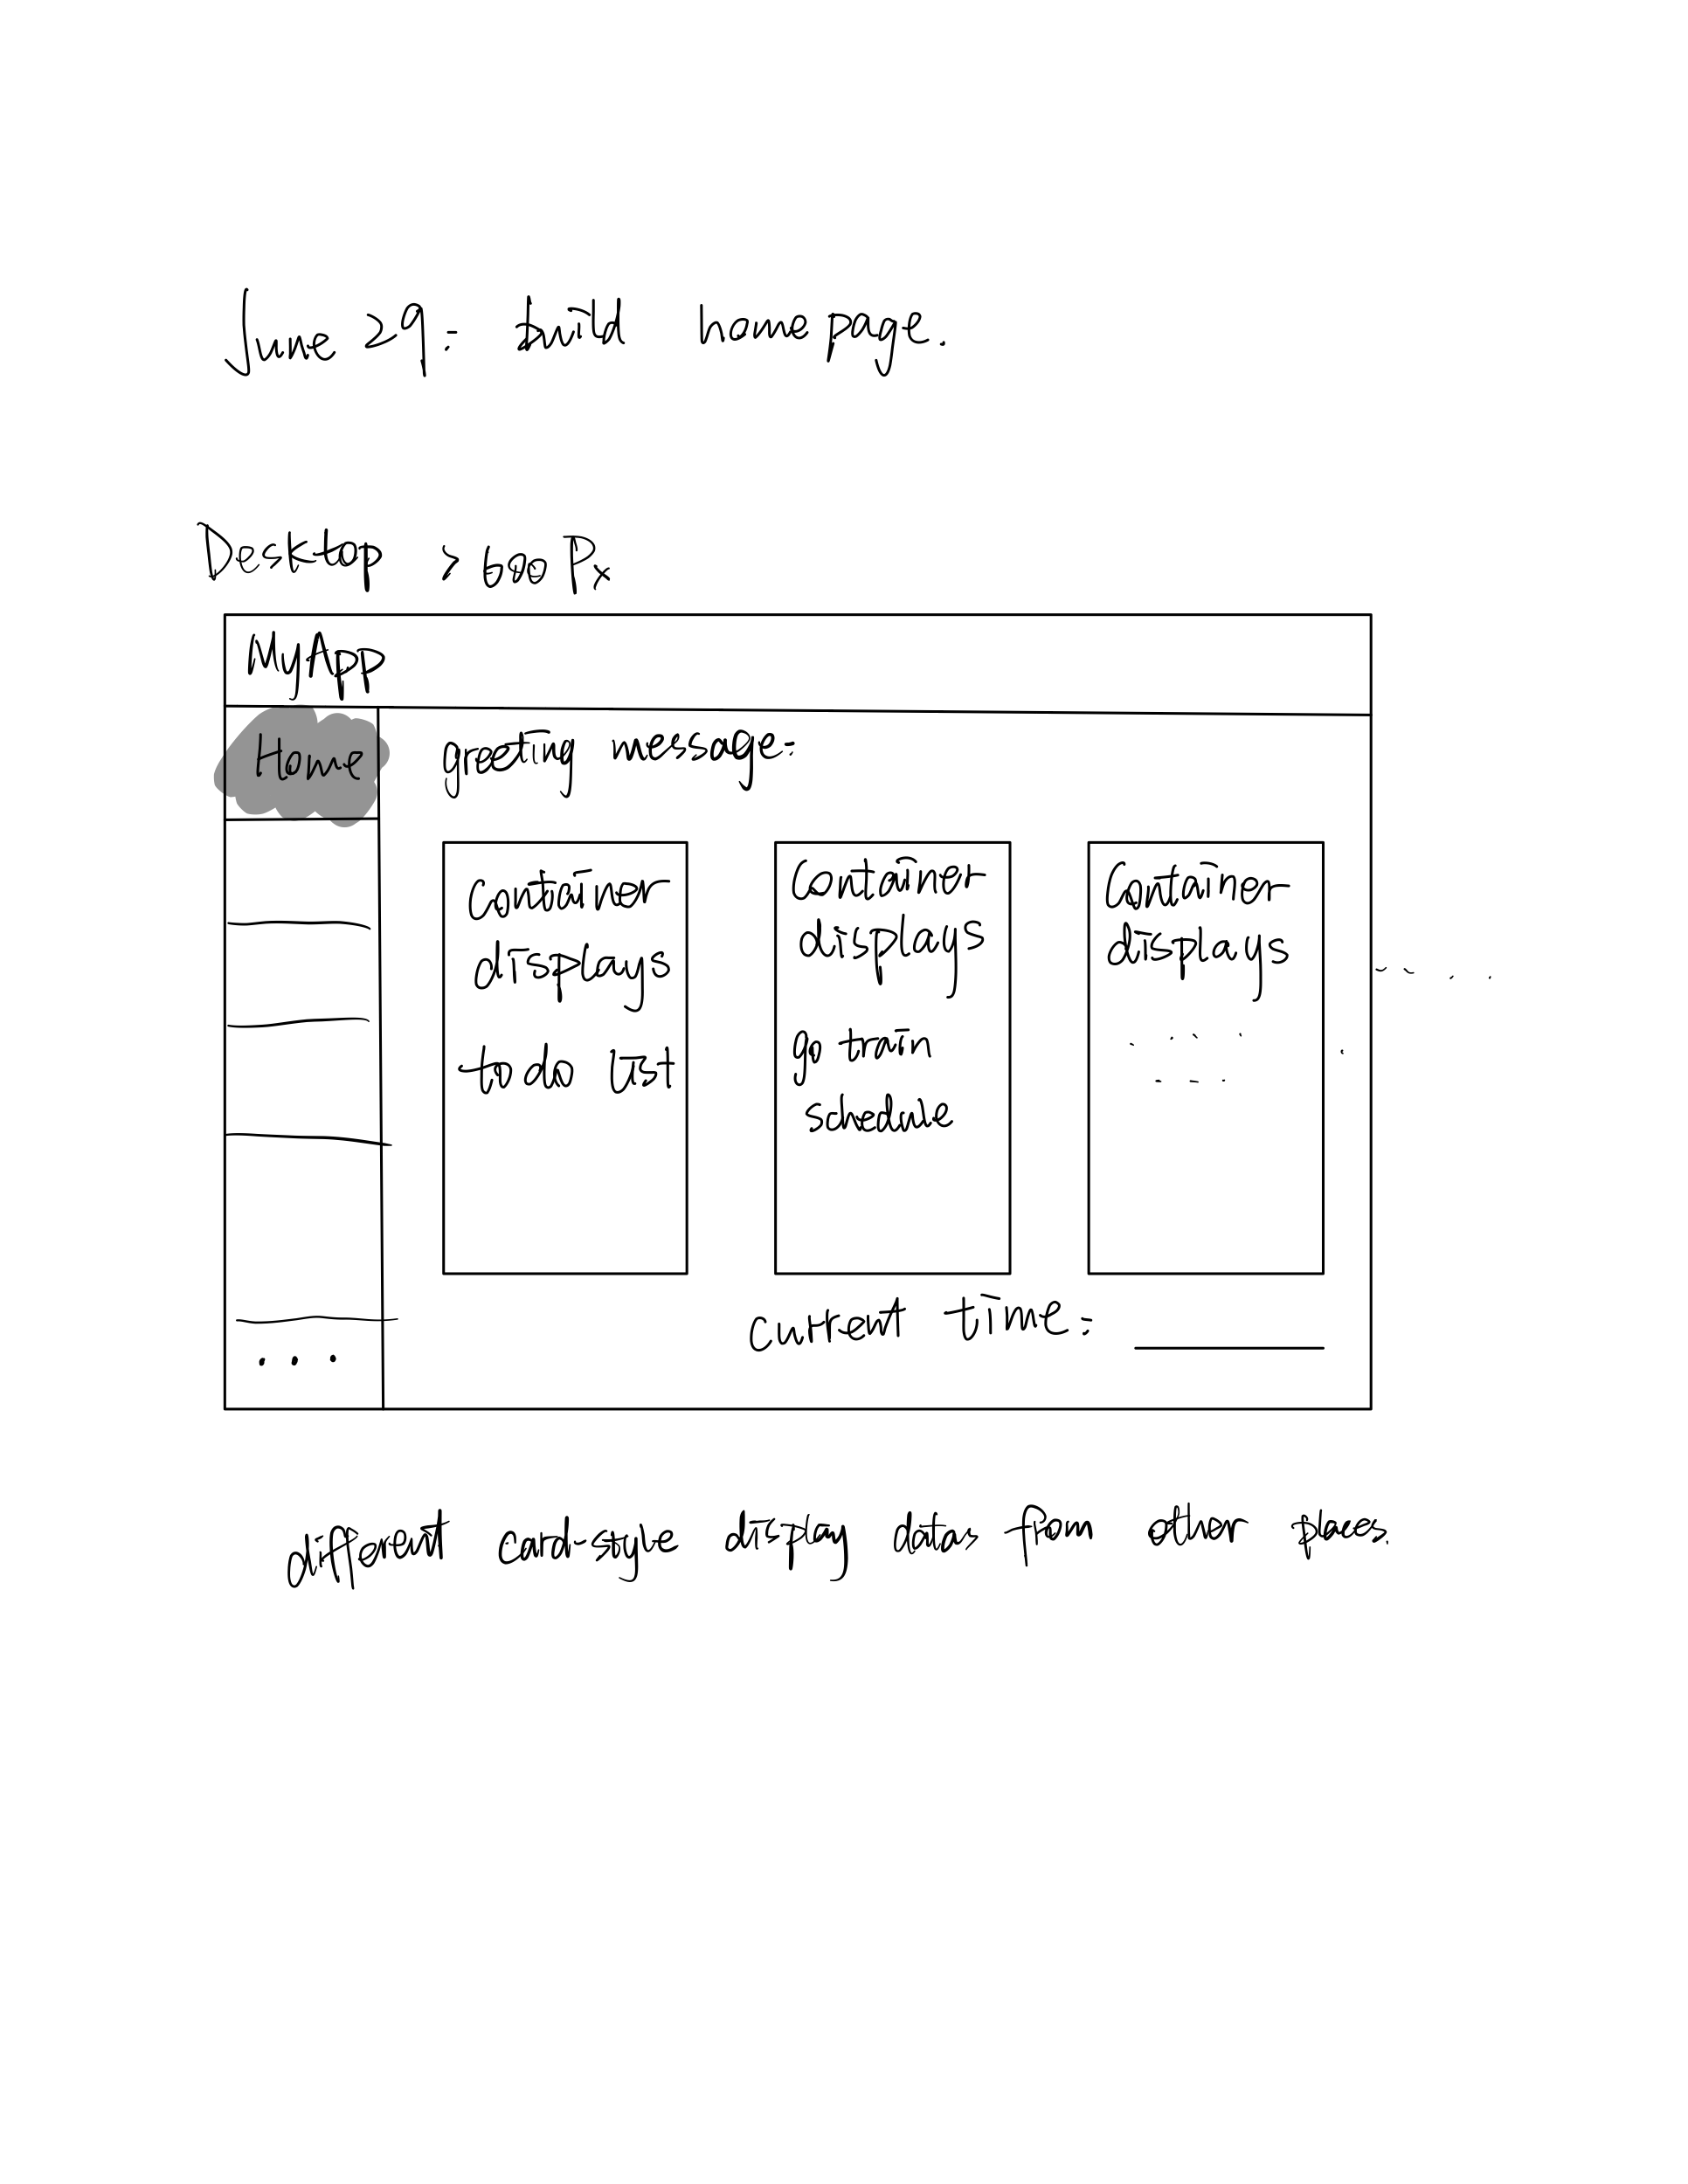 June 29: build homepage.
Desktop >600px
MyApp
Home
greeting message:
Container
displays
to do list
Container
displays
go train
schedule
Container
displays
. . . .
. . .
. . . .
current time: ______
. . .
different card-style display data from other places.